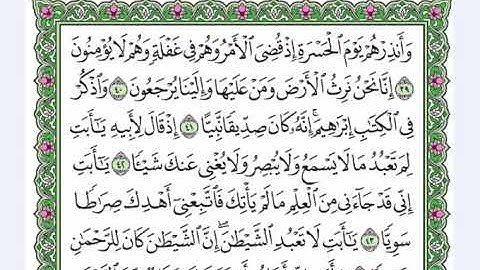 وَأَنذِرْهُمْ يَوْمَ ٱلْحَسْرَةِ إِذْ قُضِىَ ٱلْأَمْرُ وَهُمْ فِى غَفْلَةٍ وَهُمْ لَا يُؤْمِنُونَ
٣٩ إِنَّا نَحْنُ نَرِثُ ٱلْأَرْضَ وَمَنْ عَلَيْهَا وَإِلَيْنَا يُرْجَعُونَ ٤٠ وَٱذْكُرْ
فِى ٱلْكِتَٰبِ إِبْرَٰهِيمَ ۚ إِنَّهُۥ كَانَ صِدِّيقًا نَّبِيًّا ٤١ إِذْ قَالَ لِأَبِيهِ يَٰٓأَبَتِ
لِمَ تَعْبُدُ مَا لَا يَسْمَعُ وَلَا يُبْصِرُ وَلَا يُغْنِى عَنكَ شَيْـًٔا ٤٢ يَٰٓأَبَتِ
إِنِّى قَدْ جَآءَنِى مِنَ ٱلْعِلْمِ مَا لَمْ يَأْتِكَ فَٱتَّبِعْنِىٓ أَهْدِكَ صِرَٰطًا
سَوِيًّا ٤٣ يَٰٓأَبَتِ لَا تَعْبُدِ ٱلشَّيْطَٰنَ ۖ إِنَّ ٱلشَّيْطَٰنَ كَانَ لِلرَّحْمَٰنِ